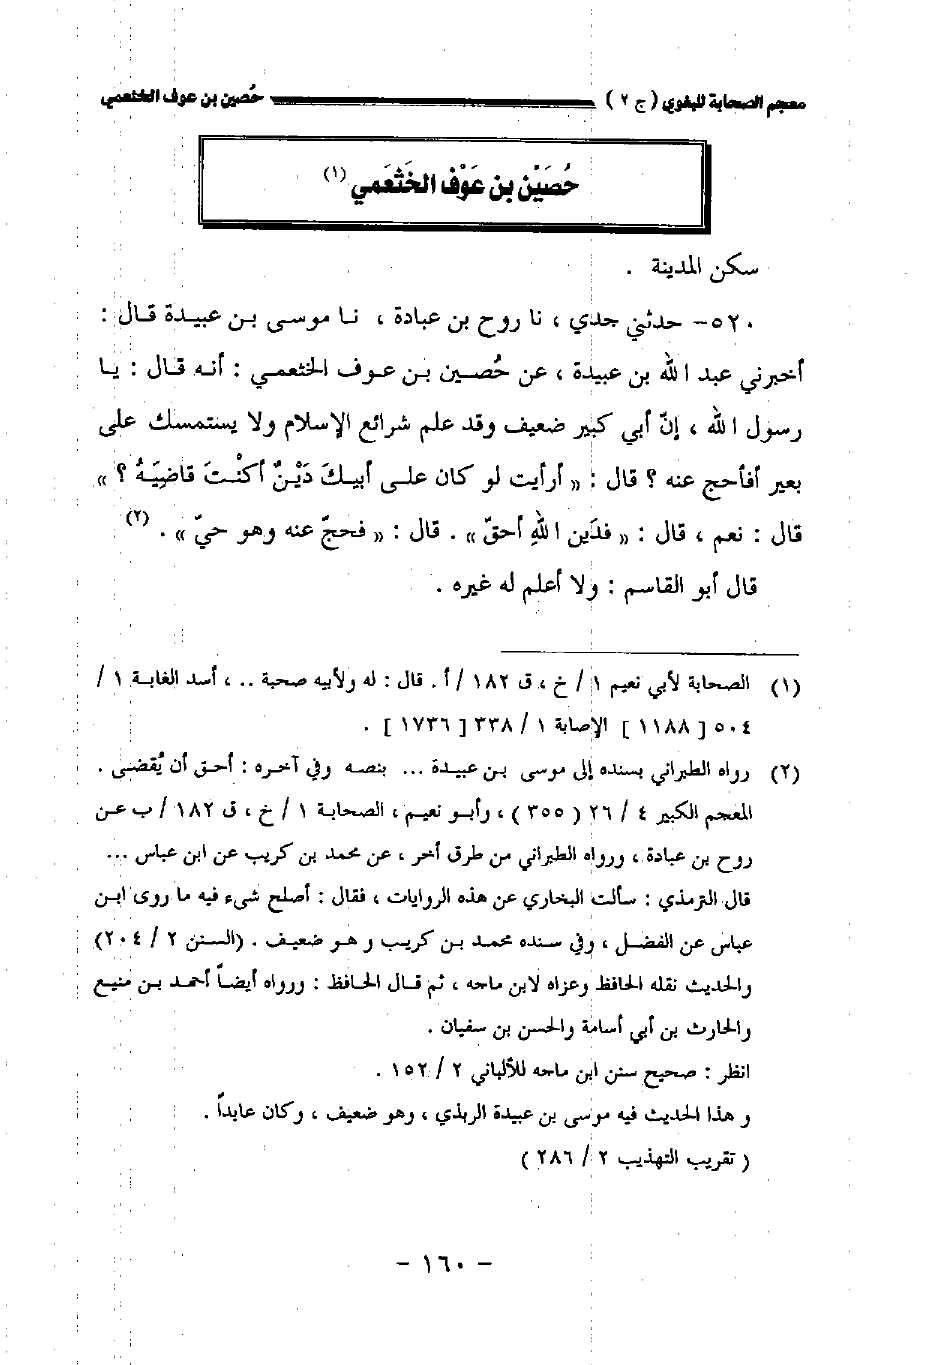 معجم الصحابة للبغوي ( ج ٢ ) حُصين بن عوف الخثعمي
حُصَيْن بن عَوْف الخَثعَمي (١)
سكن المدينة .
٥٢٠- حدثني جدي ، نا روح بن عبادة ، نـا موسـى بـن عبيـدة قـال :
أخبرني عبد الله بن عبيدة ، عن حُصـين بـن عـوف الخثعمـي : أنـه قـال : يـا
رسول الله ، إنّ أبي كبير ضعيف وقد علم شرائع الإسلام ولا يستمسك على
بعير أفأحج عنه ؟ قال : « أرأيت لو كان علـى أبيـكَ دَيْـنٌ أكنْـتَ قاضِيَـهُ ؟ »
قال : نعم ، قال : « فدَين اللهِ أحقّ » . قال : « فحجّ عنه وهو حيّ » . (٢)
قال أبو القاسم : ولا أعلم له غيره .
(١) الصحابة لأبي نعيم ١ / خ ، ق ١٨٢ / أ . قال : له ولأبيه صحبة .. ، أسد الغابـة ١ /
٥٠٤ [ ١١٨٨ ] الإصابة ١ / ٣٣٨ [ ١٧٣٦ ] .
(٢) رواه الطبراني بسنده إلى موسى بـن عبيـدة ... بنصـه وفي آخـره : أحـق أن يُقضـى .
المعجم الكبير ٤ / ٢٦ ( ٣٥٥ ) ، وأبـو نعيـم ، الصحابـة ١ / خ ، ق ١٨٢ / ب عـن
روح بن عبادة ، ورواه الطبراني من طرق أخر ، عن محمد بن كريب عن ابن عباس ...
قال الترمذي : سألت البخاري عن هذه الروايات ، فقال : أصلح شيء فيه ما روى ابـن
عباس عن الفضـل ، وفي سنده محمـد بـن كريـب و هـو ضعيـف . (السـنن ٢ / ٢٠٤)
والحديث نقله الحافظ وعزاه لابن ماجه ، ثم قـال الحـافظ : ورواه أيضـاً أحمـد بـن منيـع
والحارث بن أبي أسامة والحسن بن سفيان .
انظر : صحيح سنن ابن ماجه للألباني ٢ / ١٥٢ .
و هذا الحديث فيه موسى بن عبيدة الربذي ، وهو ضعيف ، وكان عابداً .
( تقريب التهذيب ٢ / ٢٨٦ )
- ١٦٠ -